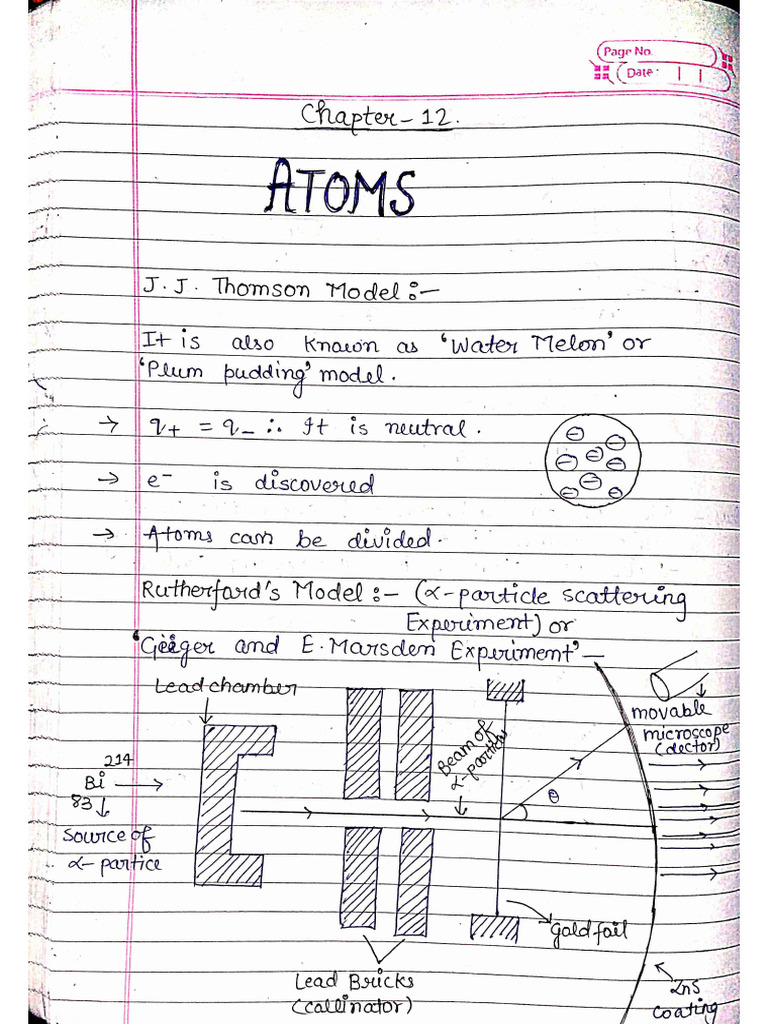 Page No.
Date :
Chapter-12.
ATOMS
J.J. Thomson Model :-
It is also known as 'Water Melon' or
'Plum pudding' model.
→ q+ = q- ∴ It is neutral.
→ e- is discovered
→ Atoms can be divided.
Rutherfard's Model :- (α-particle scattering
Experiment) or
'Geiger and E. Marsden Experiment' -
Lead chamber
movable
microscope
(dector)
Beam of
α-particles
214
Bi
83
θ
Source of
α-partice
Gold foil
Lead Bricks
(Callinator)
ZnS
coating